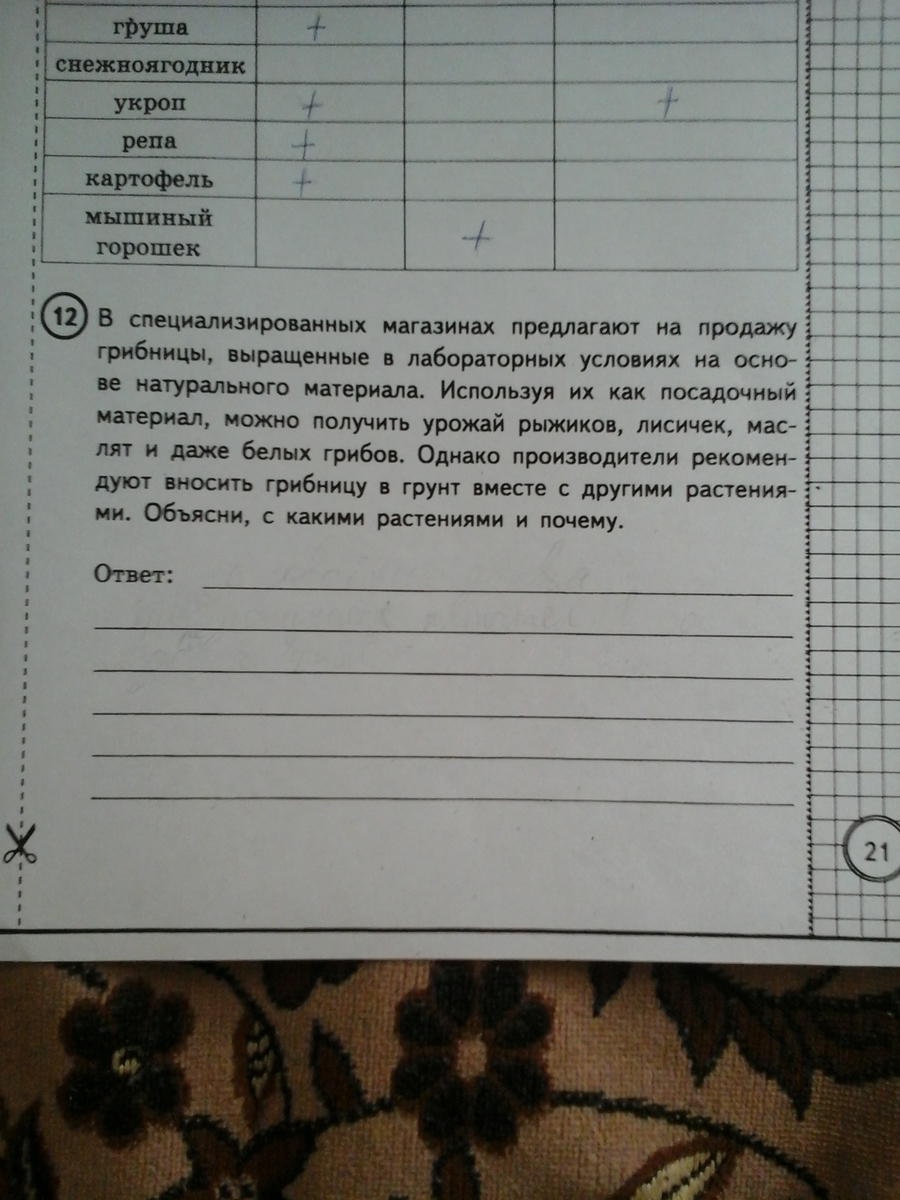 груша +
снежноягодник
укроп + +
репа +
картофель +
мышиный
горошек +
12 В специализированных магазинах предлагают на продажу
грибницы, выращенные в лабораторных условиях на осно-
ве натурального материала. Используя их как посадочный
материал, можно получить урожай рыжиков, лисичек, мас-
лят и даже белых грибов. Однако производители рекомен-
дуют вносить грибницу в грунт вместе с другими растения-
ми. Объясни, с какими растениями и почему.
Ответ:
21